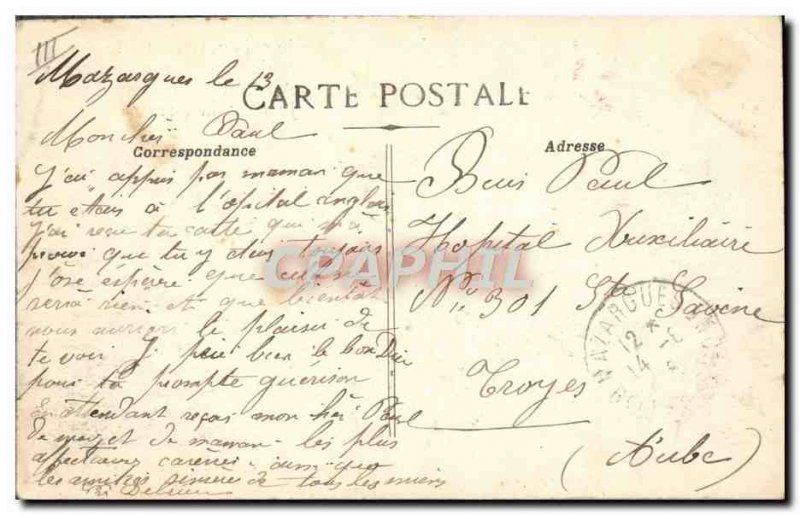 III
Mazargues le 13
CARTE POSTALE
Mon cher Paul
Correspondance
J'ai appris par maman que
tu étais à l'opital anglais
J'ai reçu ta carte qui m'a
prouvé que tu y étais toujours
j'ose espérer que ce ne
sera rien et que bientôt
nous aurions le plaisir de
te voir J prie bien le bon Dieu
pour ta prompte guérison
En attendant reçois mon chèr Paul
de moi et de maman les plus
affectueuses carésses ainsi que
les amitiés de tous les miens
Adresse
Paul
Hopital Auxiliaire
No 301 Ste Savine
Troyes
(Aube)
MAZARGUES
12 *
14
CPAPHIL